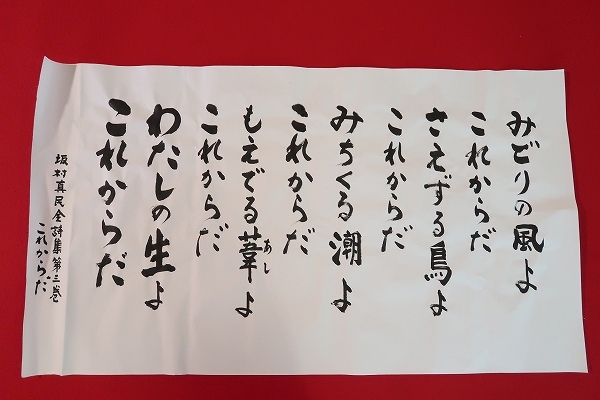 みどりの風よ
これからだ
さえずる鳥よ
これからだ
みちくる潮よ
これからだ
もえでる葦よ
あし
これからだ
わたしの生よ
これからだ
坂村真民全詩集第三巻
これからだ